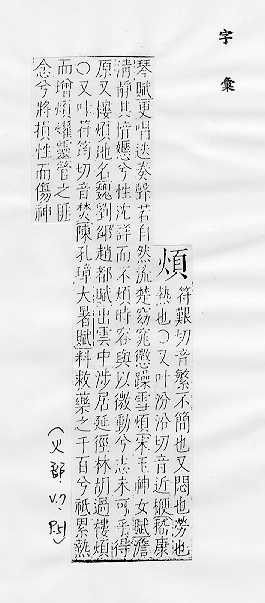 字彙
煩
符艱切音繁不簡也又悶也勞也
熱也○又叶汾沿切音近嵇康
琴賦更唱迭奏聲若自然流楚窈窕懲躁雪煩宋玉神女賦澹
清靜其愔嫕兮性沈詳而不煩時容與以微動兮志未可乎得
原又樓煩地名魏劉邵趙都賦出雲中涉居延徑林胡過樓煩
○又叶符筠切音焚陳孔璋大暑賦料救藥之千百兮祗累熱
而增煩燿靈管之匪
念兮將損性而傷神
(火部 V.7, P.51)